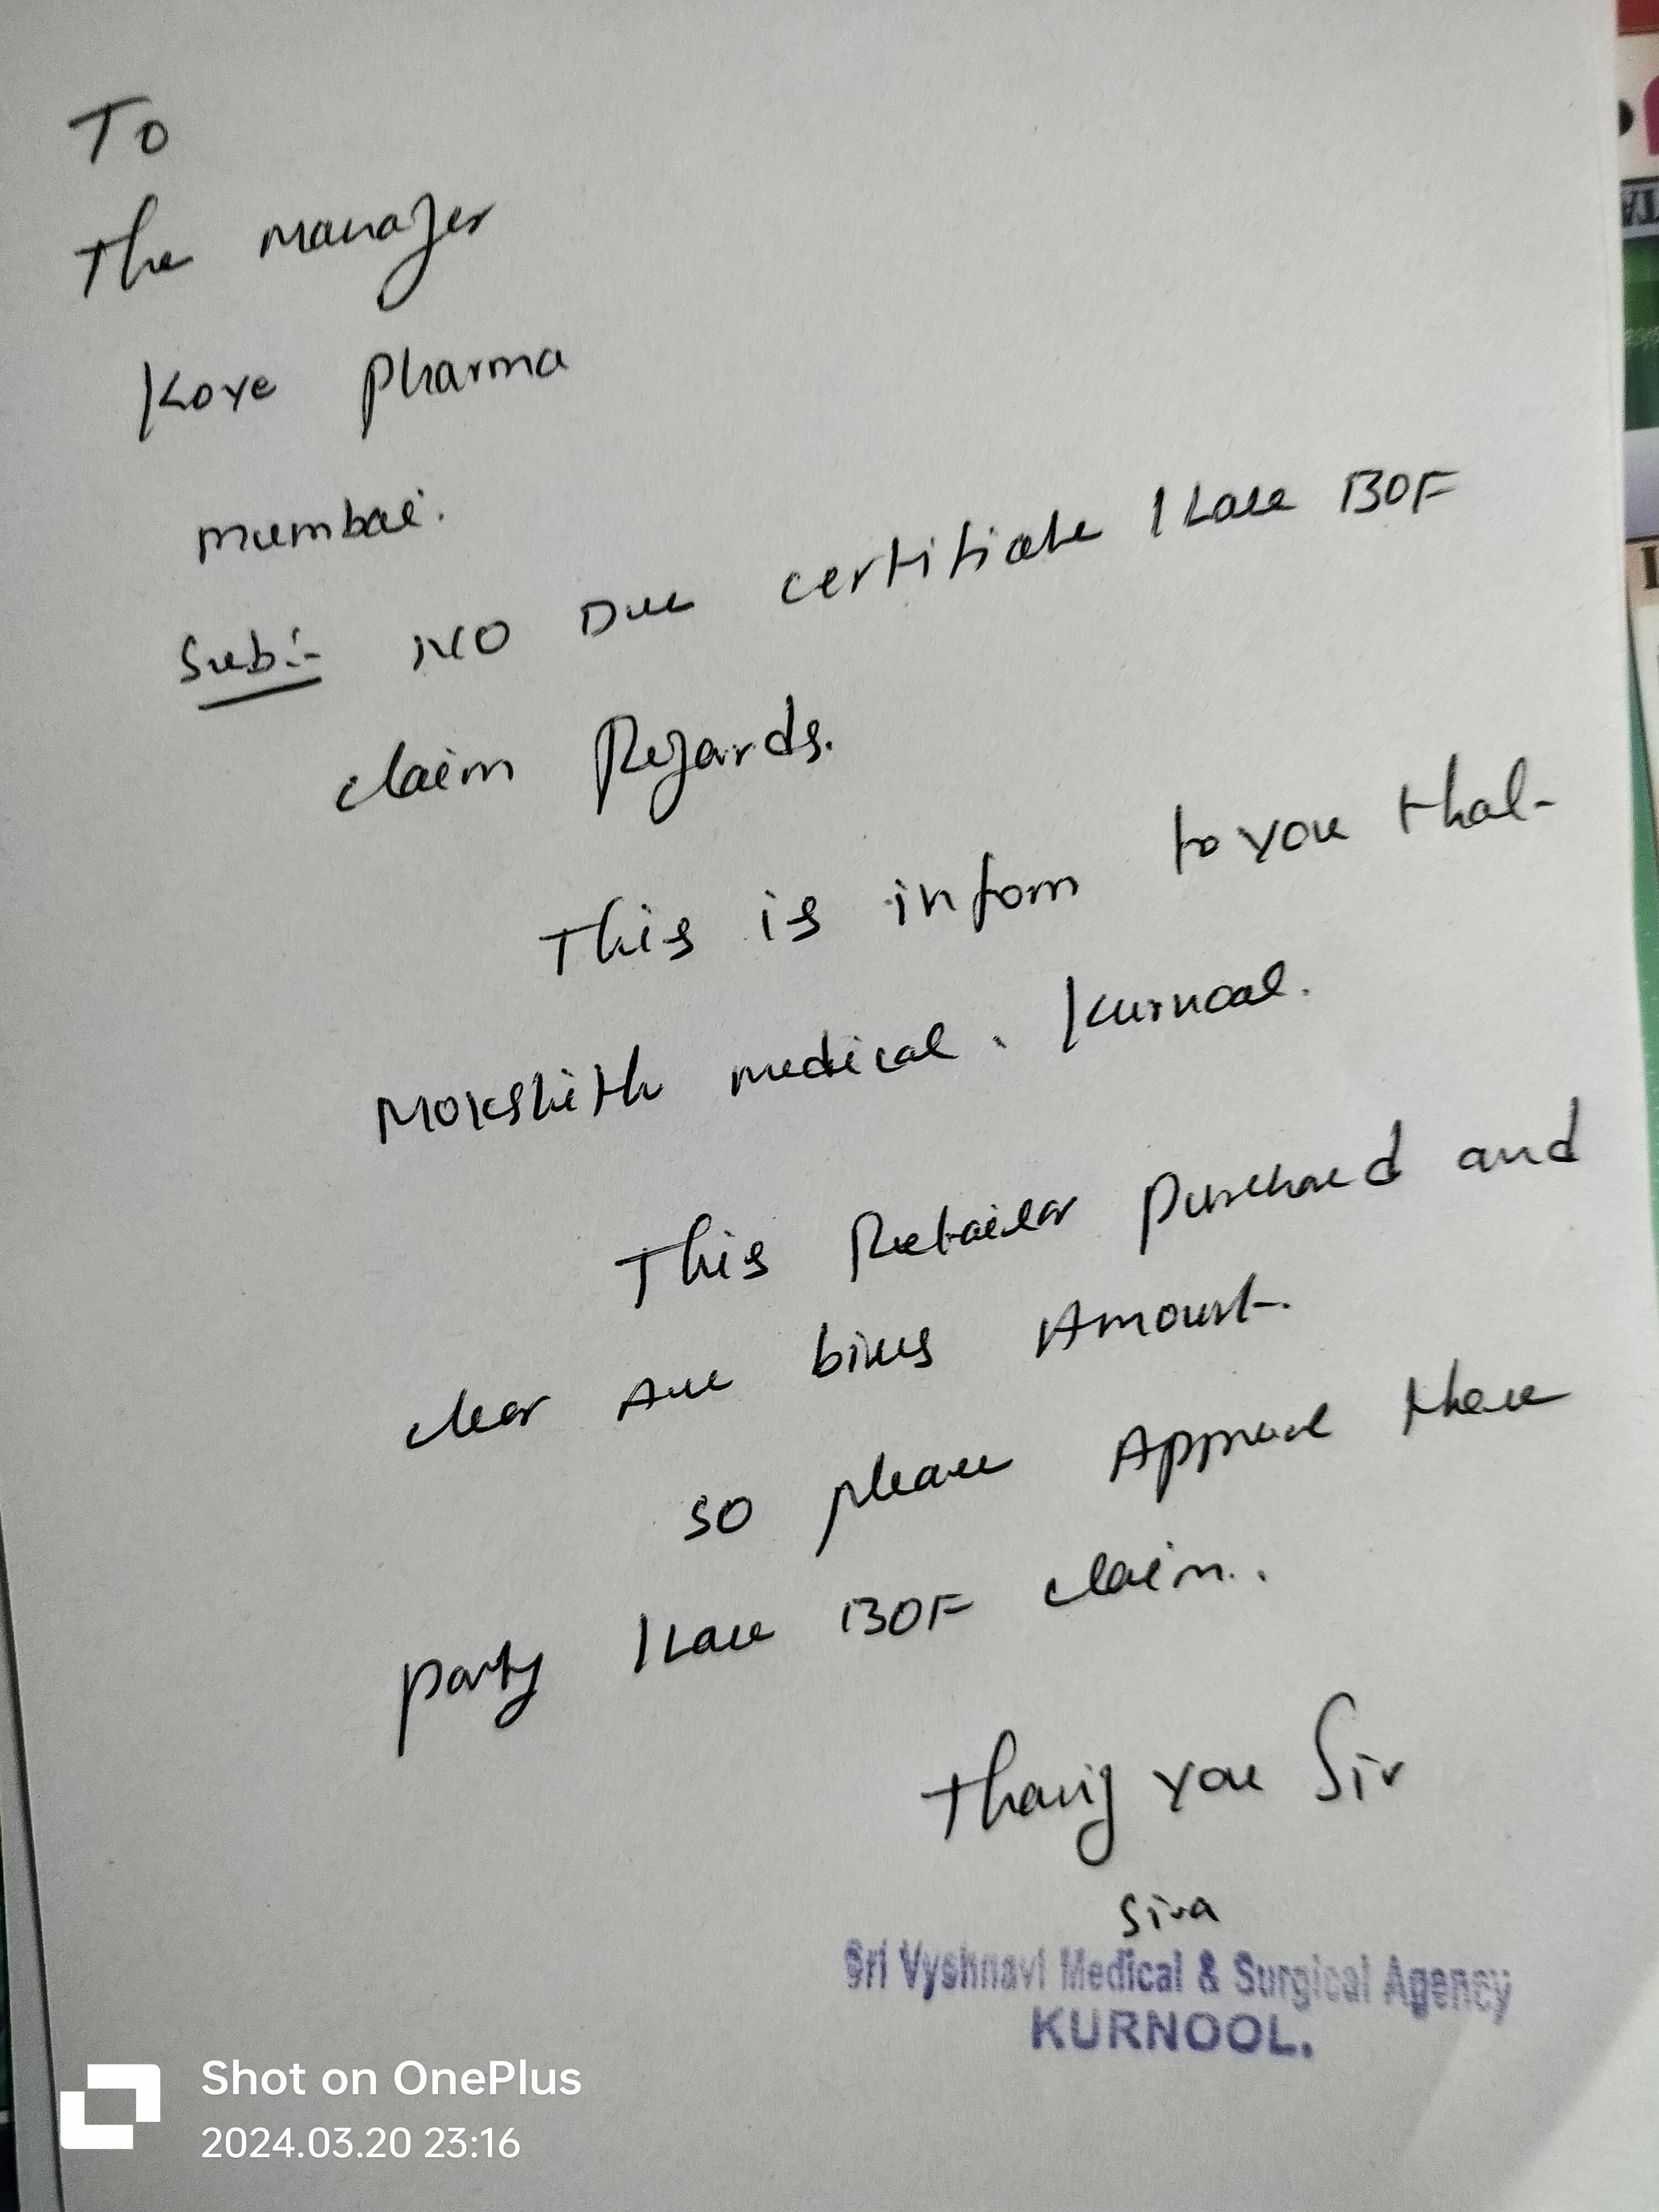 To
The manager
Koye pharma
mumbai.
Sub:- NO Due certificate 1 Lace BOF
claim Regards.
This is inform to you that
Mokshith medical. Kurnool.
This Retailer purchased and
clear All bills Amount.
so please Approve these
party 1 Lace BOF claim..
Thang you Sir
Siva
Sri Vyshnavi Medical & Surgical Agency
KURNOOL.
Shot on OnePlus
2024.03.20 23:16